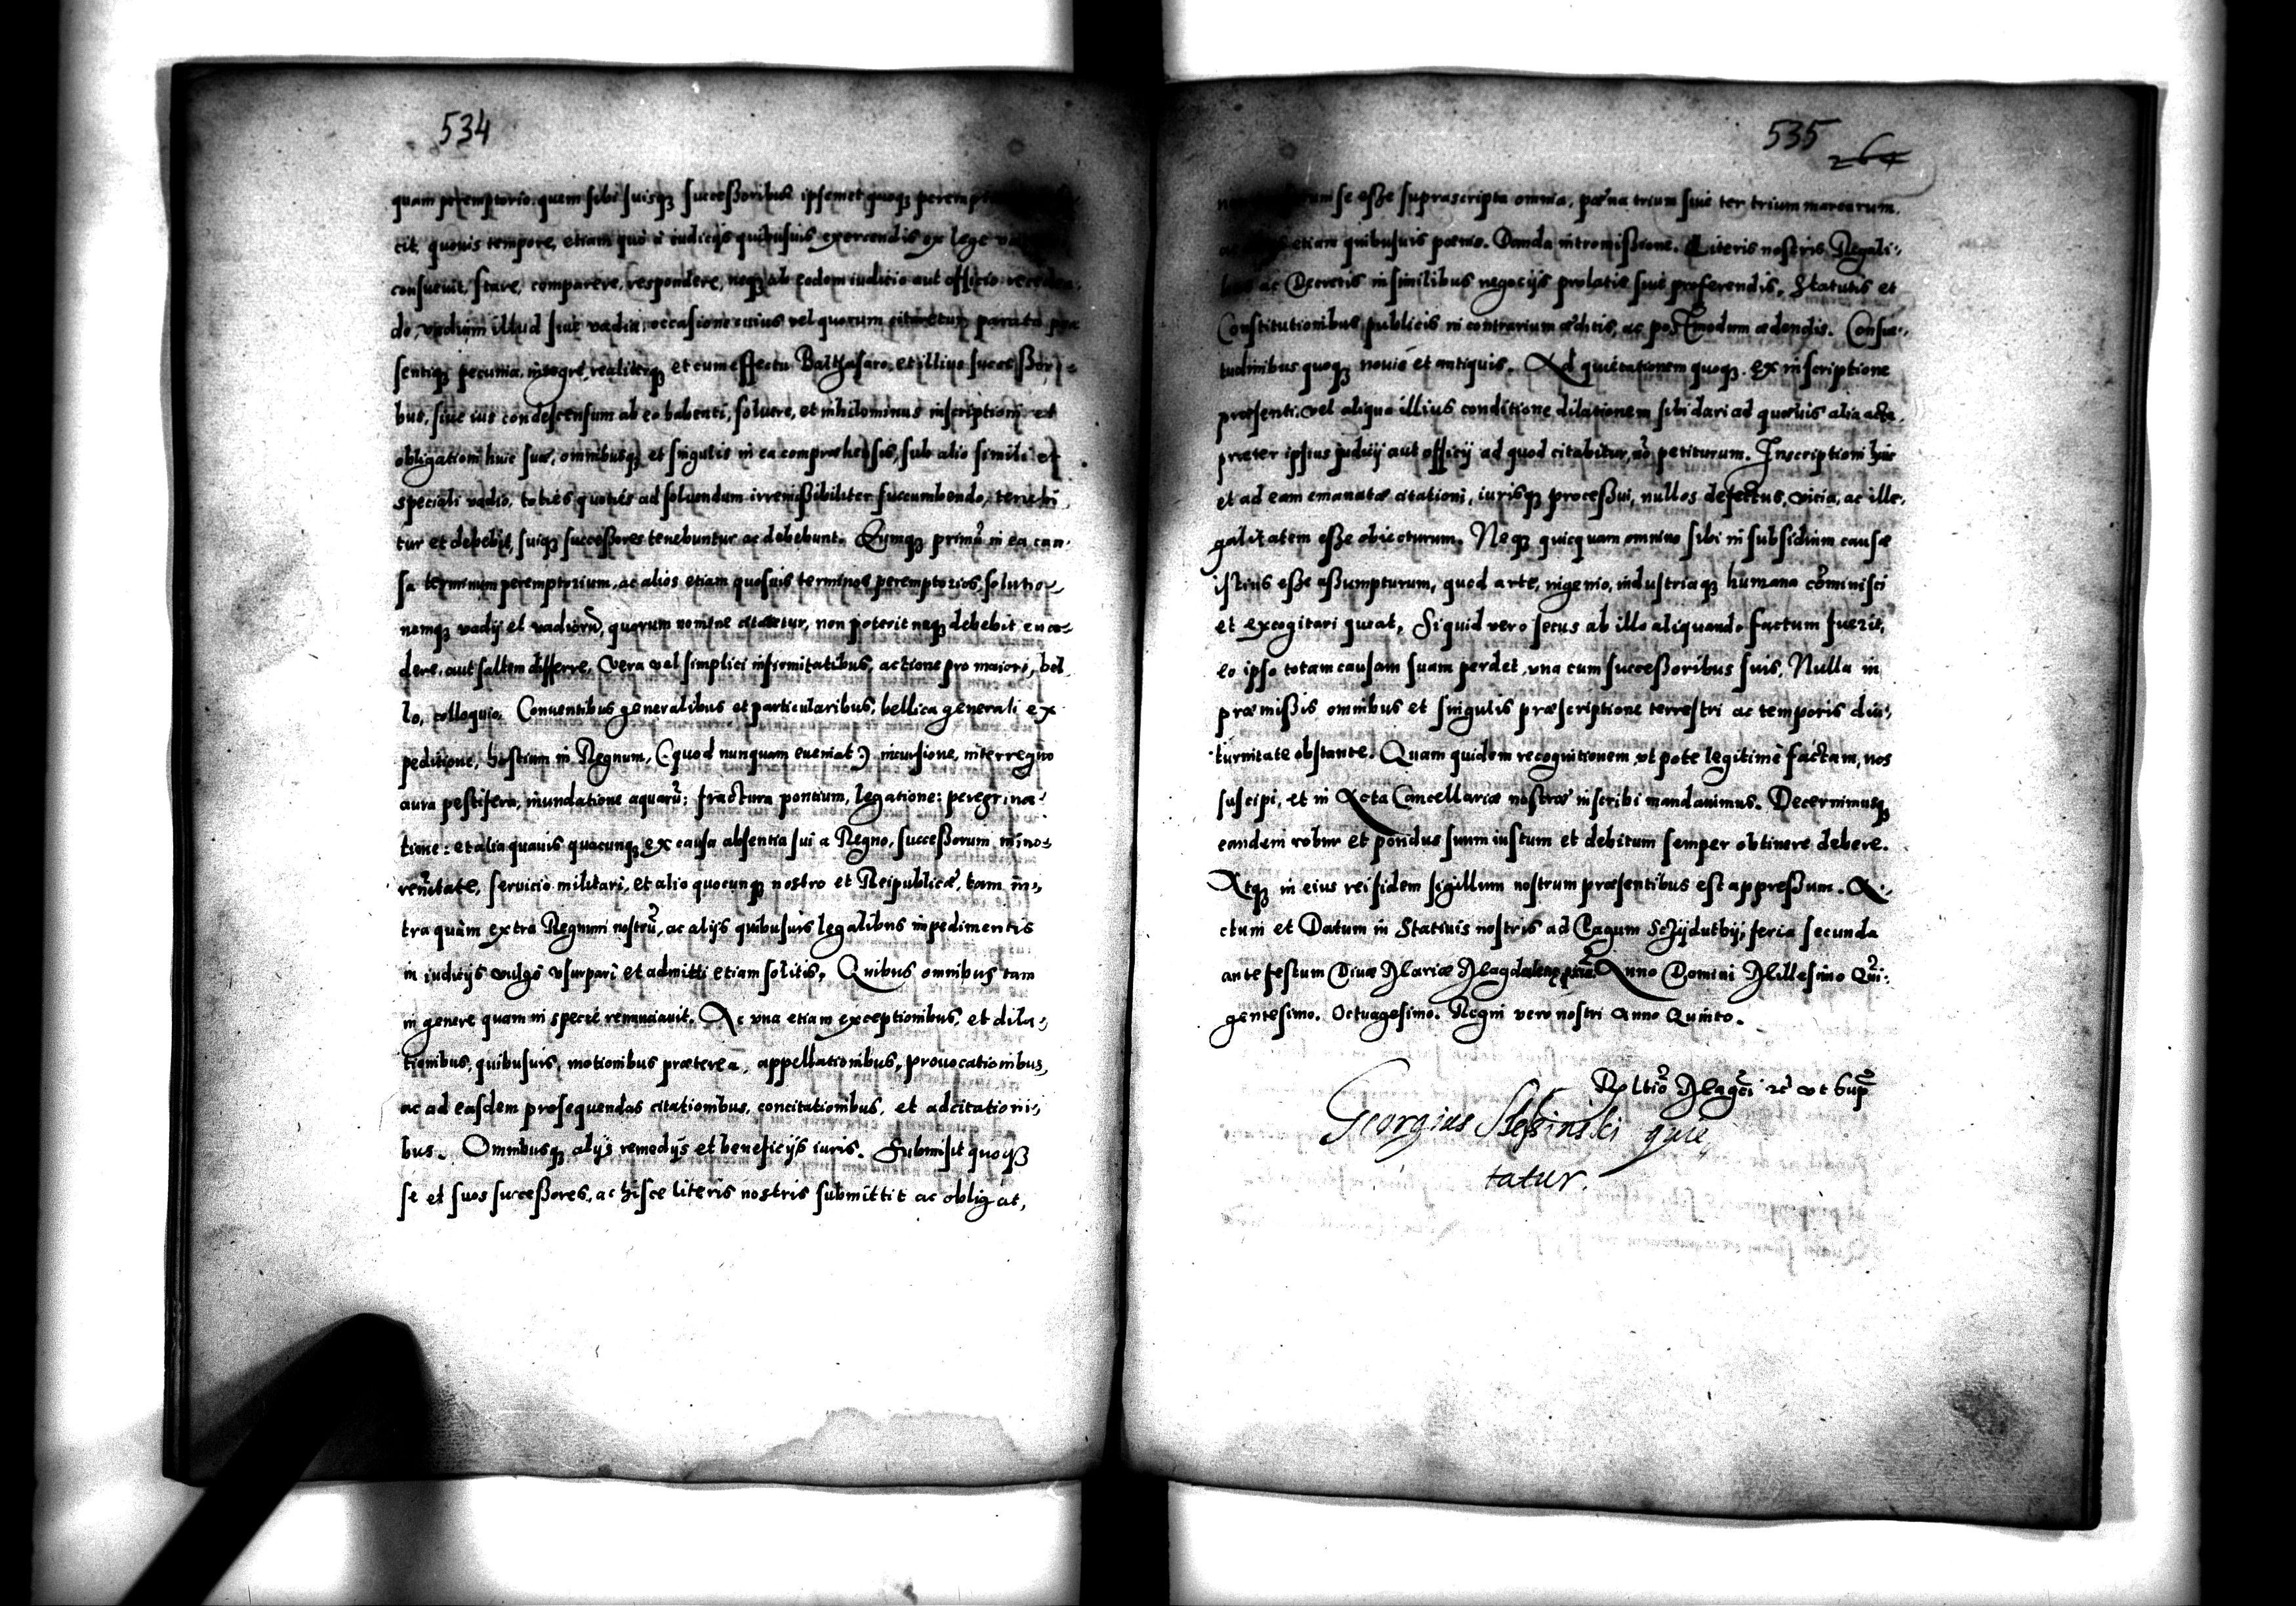 534
quam peremptorio, quem sibi suisq; successoribus ipsemet quoq; peremp
cit, quouis tempore, etiam quo a iudicijs quibusuis exercendis ex lege
consueuit, stare, comparere, respondere, neq; ab eodem iudicio aut officio receden
do, vadium illud siue vadia, occasione cuius vel quorum citaretur parata præ
sentiq; pecunia, integre, realiterq; et cum effectu Balthasaro et illius successori
bus, siue ius condescensum ab eo habenti, soluere, et nihilominus inscriptioni et
obligationi huic suæ, omnibusq; et singulis in ea compræhensis, sub alio simili et
speciali vadio, toties quoties ad soluendum irremissibiliter succumbendo, tenebi
tur et debebit, suiq; successores tenebuntur ac debebunt. Eumq; primū in ea cau-
sa terminum peremptorium, ac alios etiam quosuis terminos peremptorios, solutio-
nemq; vadij et vadiorū, quorum nomine citaretur, non poterit neq; debebit euæ-
dere, aut saltem differre, Vera vel simplici infirmitatibus, actione pro maiori, bel
lo, colloquio, Conuentibus generalibus et particularibus, bellica generali ex
peditione, hostium in Regnum, (: quod nunquam eueniat :) incursione, interregno
aura pestifera, inundatione aquarū, fractura pontium, legatione, peregrina-
tione: et alia quauis quacunq; ex causa absentia sui a Regno, successorum mino-
rennitate, seruicio militari, et alio quocunq; nostro et Reipublicæ, tam in-
tra quàm extra Regnum nostrū, ac alijs quibusuis legalibus impedimentis
in iudicijs vulgo vsurpari et admitti etiam solitis, Quibus omnibus tam
in genere quam in specie renunciauit. Ac vna etiam exceptionibus, et dila-
tionibus, quibusuis, motionibus præterea, appellationibus, prouocationibus,
ac ad easdem prosequendas citationibus, concitationibus, et adcitationi-
bus. Omnibusq; alijs remedijs et beneficijs iuris. Submisit quoq;
se et suos successores, ac hisce literis nostris submittit ac obligat,
535
264
se esse suprascripta omnia, pœna trium siue ter trium marcarum,
etiam quibusuis pœnis. Danda intromissione. Literis nostris Regali-
bus ac Decretis in similibus negocijs prolatis siue proferendis, Statutis et
Constitutionibus publicis in contrarium æditis, ac postmodum ædendis. Consue-
tudinibus quoq; nouis et antiquis. Ad quietationem quoq; ex inscriptione
præsenti, vel aliqua illius conditione dilationem sibi dari ad quæuis alia acta,
præter ipsius judicij aut officij ad quod citabitur, nō petiturum. Inscriptioni huic
et ad eam emanatæ citationi, iurisq; processui, nullos defectus, vicia, ac ille-
galitatem esse obiecturum. Neq; quicquam omnino sibi in subsidium causæ
istius esse assumpturum, quod arte, ingenio, industriaq; humana cōminisci
et excogitari queat, Si quid vero secus ab illo aliquando factum fuerit,
eo ipso totam causam suam perdet, vna cum successoribus suis. Nulla in
præmissis omnibus et singulis præscriptione terrestri ac temporis diu-
turnitate obstante. Quam quidem recognitionem vt pote legitimè factam, nos
suscipi, et in Acta Cancellariæ nostræ inscribi mandauimus. Decernimusq;
eandem robur et pondus suum iustum et debitum semper obtinere debere.
Atq; in eius rei fidem sigillum nostrum præsentibus est appressum. A-
ctum et Datum in Statiuis nostris ad Pagum Schydutby, feria secunda
ante festum Diuæ Mariæ Magdalenæ Anno Domini Millesimo Qui-
gentesimo. Octuagesimo. Regni vero nostri Anno Quinto.
Reltiō Magci etc vt Sup
Georgius quie
tatur.